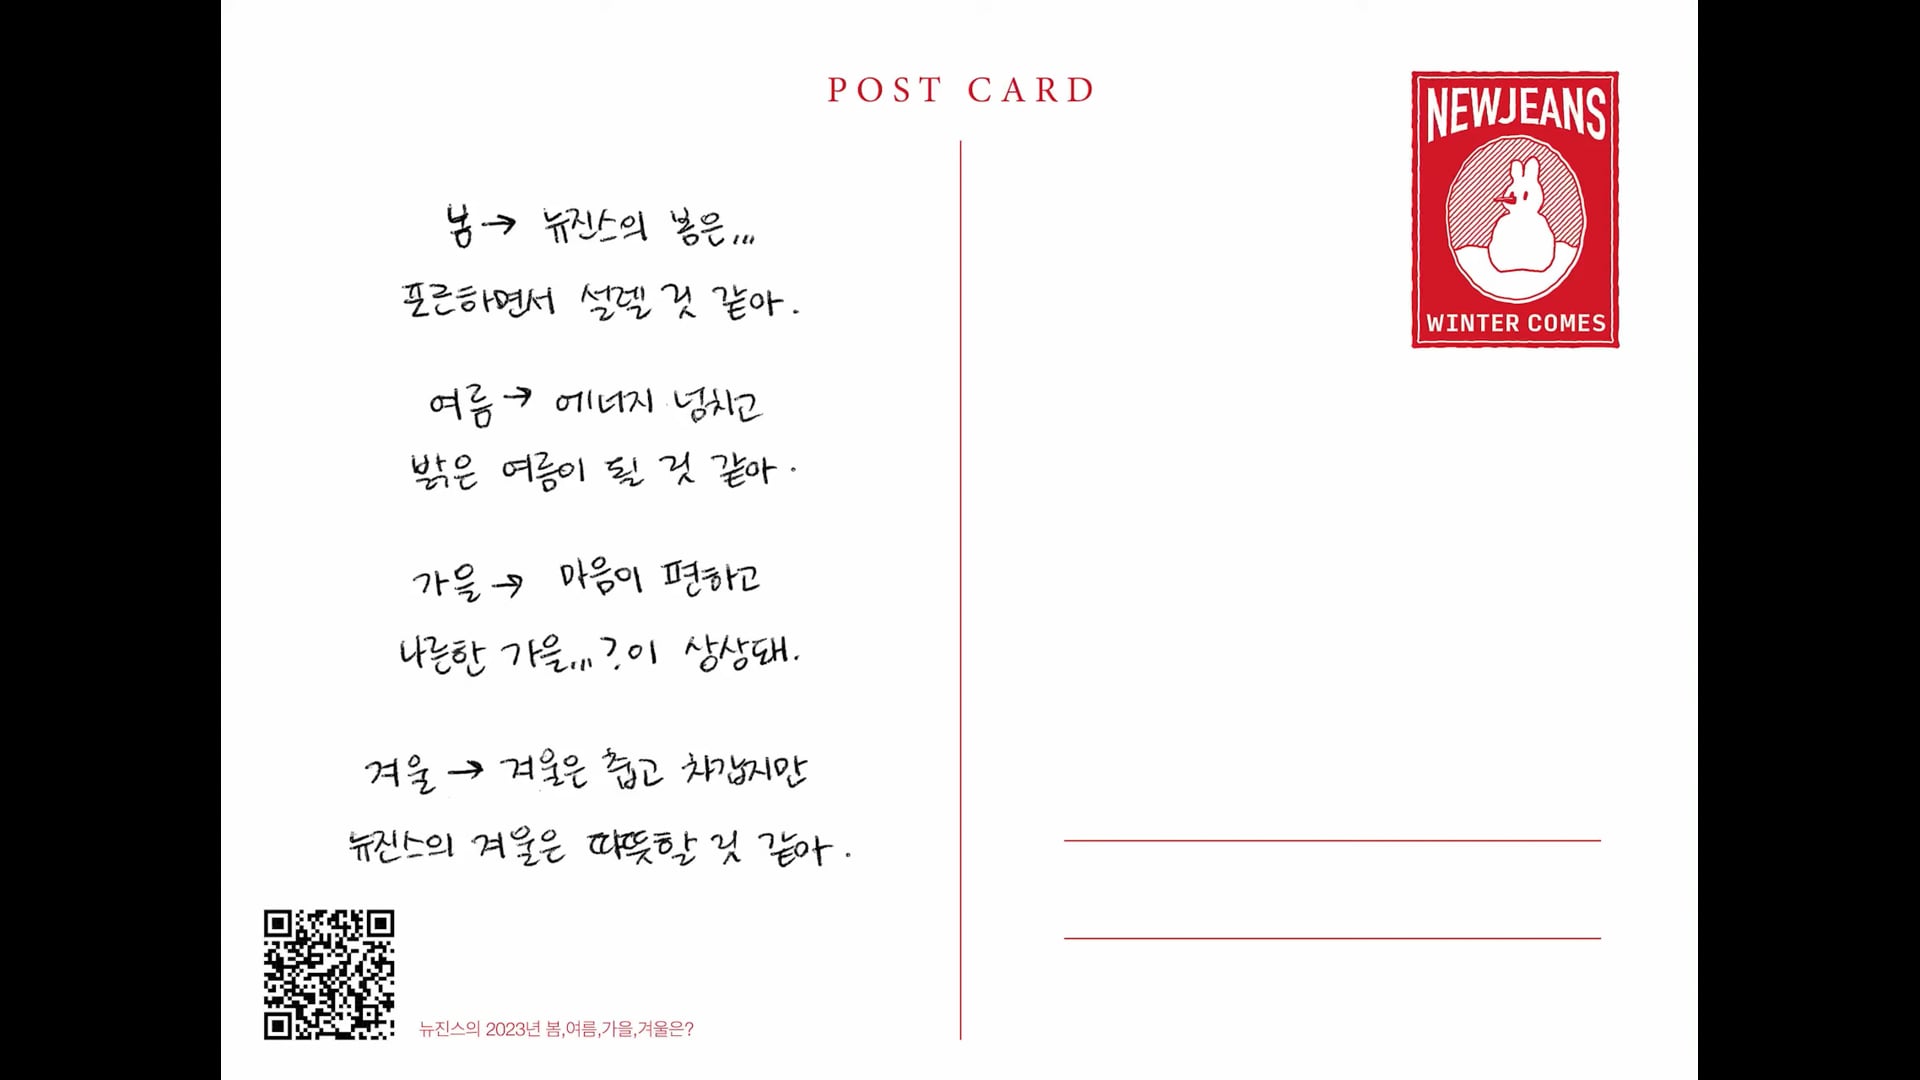 POST CARD
NEWJEANS
WINTER COMES
봄→ 뉴진스의 봄은...
포근하면서 설렐 것 같아.
여름→ 에너지 넘치고
밝은 여름이 될 것 같아.
가을→ 마음이 편하고
나른한 가을...?이 상상돼.
겨울→ 겨울은 춥고 차갑지만
뉴진스의 겨울은 따뜻할 것 같아.
뉴진스의 2023년 봄,여름,가을,겨울은?